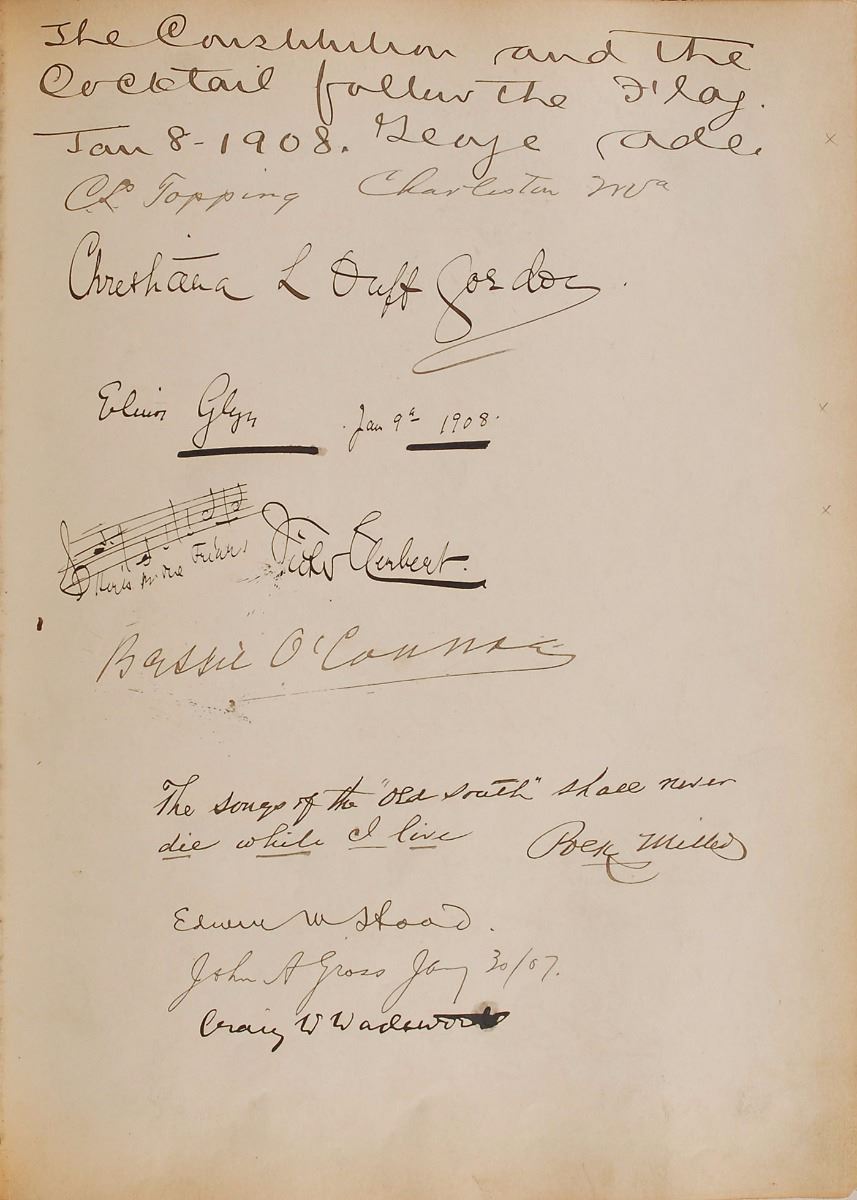 The Constitution and the
Cocktail follow the Flag.
Jan 8-1908. George Ade.
C.L. Topping Charleston WVa
L Duff Gordon.
Elinor Glyn Jan 9th 1908.
Victor Herbert.
Bessie O'Connor
The songs of the "Old South" shall never
die while I live Polk Miller
Edwin W
John A Gross Jany 30/07.
Craig W Wadsworth